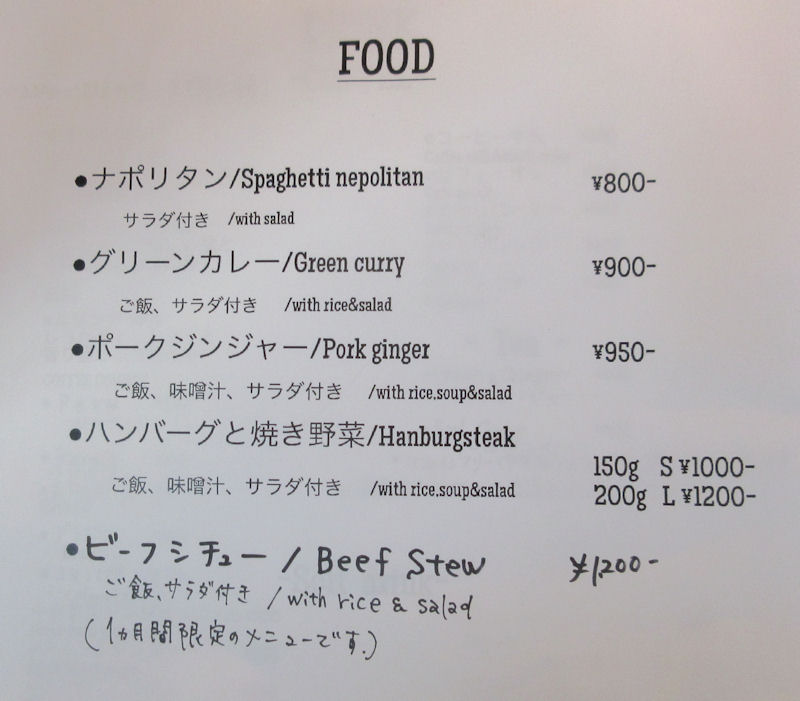 FOOD
●ナポリタン/Spaghetti nepolitan ¥800-
サラダ付き /with salad
●グリーンカレー/Green curry ¥900-
ご飯、サラダ付き /with rice&salad
●ポークジンジャー/Pork ginger ¥950-
ご飯、味噌汁、サラダ付き /with rice.soup&salad
●ハンバーグと焼き野菜/Hanburgsteak
150g S ¥1000-
ご飯、味噌汁、サラダ付き /with rice.soup&salad 200g L ¥1200-
●ビーフシチュー / Beef Stew ¥1,200-
ご飯、サラダ付き / with rice & salad
(1ヵ月間限定のメニューです。)